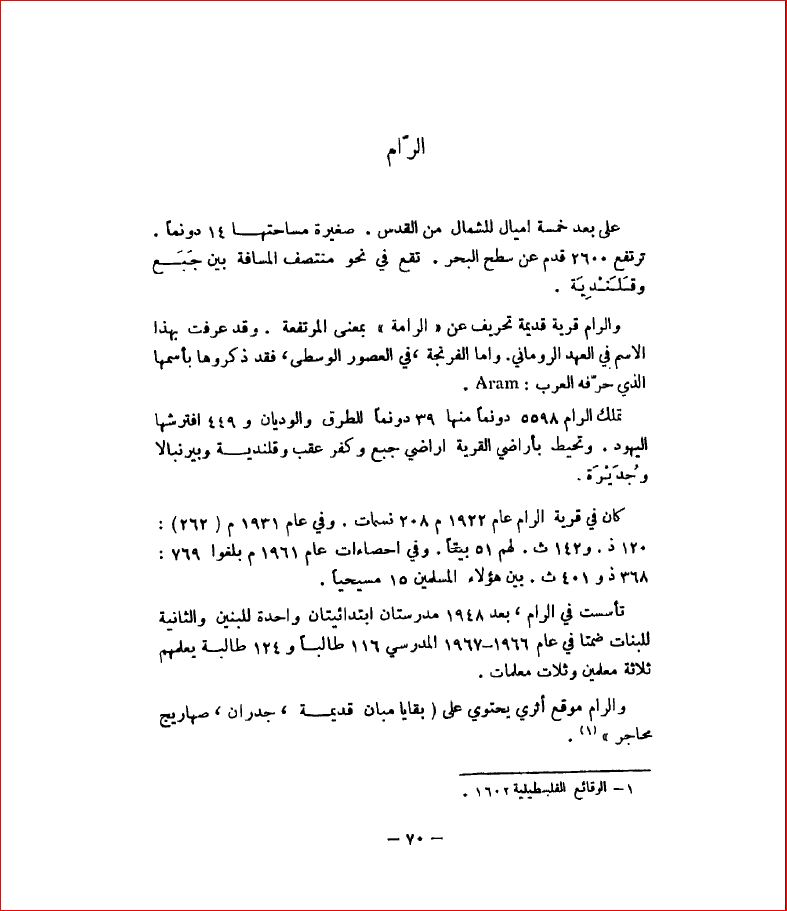 الرّام
على بعد خمسة اميال للشمال من القدس . صغيرة مساحتهـــا ١٤ دونماً .
ترتفع ٢٦٠٠ قدم عن سطح البحر . تقع في نحو منتصف المسافة بين جَبَـــع
وقَـلَـنْـدِيَة .
والرام قرية قديمة تحريف عن « الرامة » بمعنى المرتفعة . وقد عرفت بهذا
الاسم في العهد الروماني. واما الفرنجة ،في العصور الوسطى، فقد ذكروها بأسمها
الذي حرّفه العرب : Aram .
تملك الرام ٥٥٩٨ دونماً منها ٣٩ دونماً للطرق والوديان و ٤٤٩ افترشها
اليهود . وتحيط بأراضي القرية اراضي جبع وكفر عقب وقلنديـــة وبيرنبالا
وجُدَيْرَة .
كان في قرية الرام عام ١٩٢٢ م ٢٠٨ نسمات . وفي عام ١٩٣١ م ( ٢٦٢) :
١٢٠ ذ . و١٤٢ ث . لهم ٥١ بيتاً . وفي احصاءات عام ١٩٦١ م بلغوا ٧٦٩ :
٣٦٨ ذ و ٤٠١ ث . بين هؤلاء المسلمين ١٥ مسيحياً .
تأسست في الرام ، بعد ١٩٤٨ مدرستان ابتدائيتان واحدة للبنين والثانية
للبنات ضمتا في عام ١٩٦٦–١٩٦٧ المدرسي ١١٦ طالبـاً و ١٢٤ طالبـة يعلمهم
ثلاثة معلمين وثلاث معلمات .
والرام موقع أثري يحتوي على ( بقايا مبان قديمـــة ، جدران ، صهاريج
محاجر » (١) .
١– الوقائع الفلسطيلية ١٦٠٢ .
– ٧٠ –